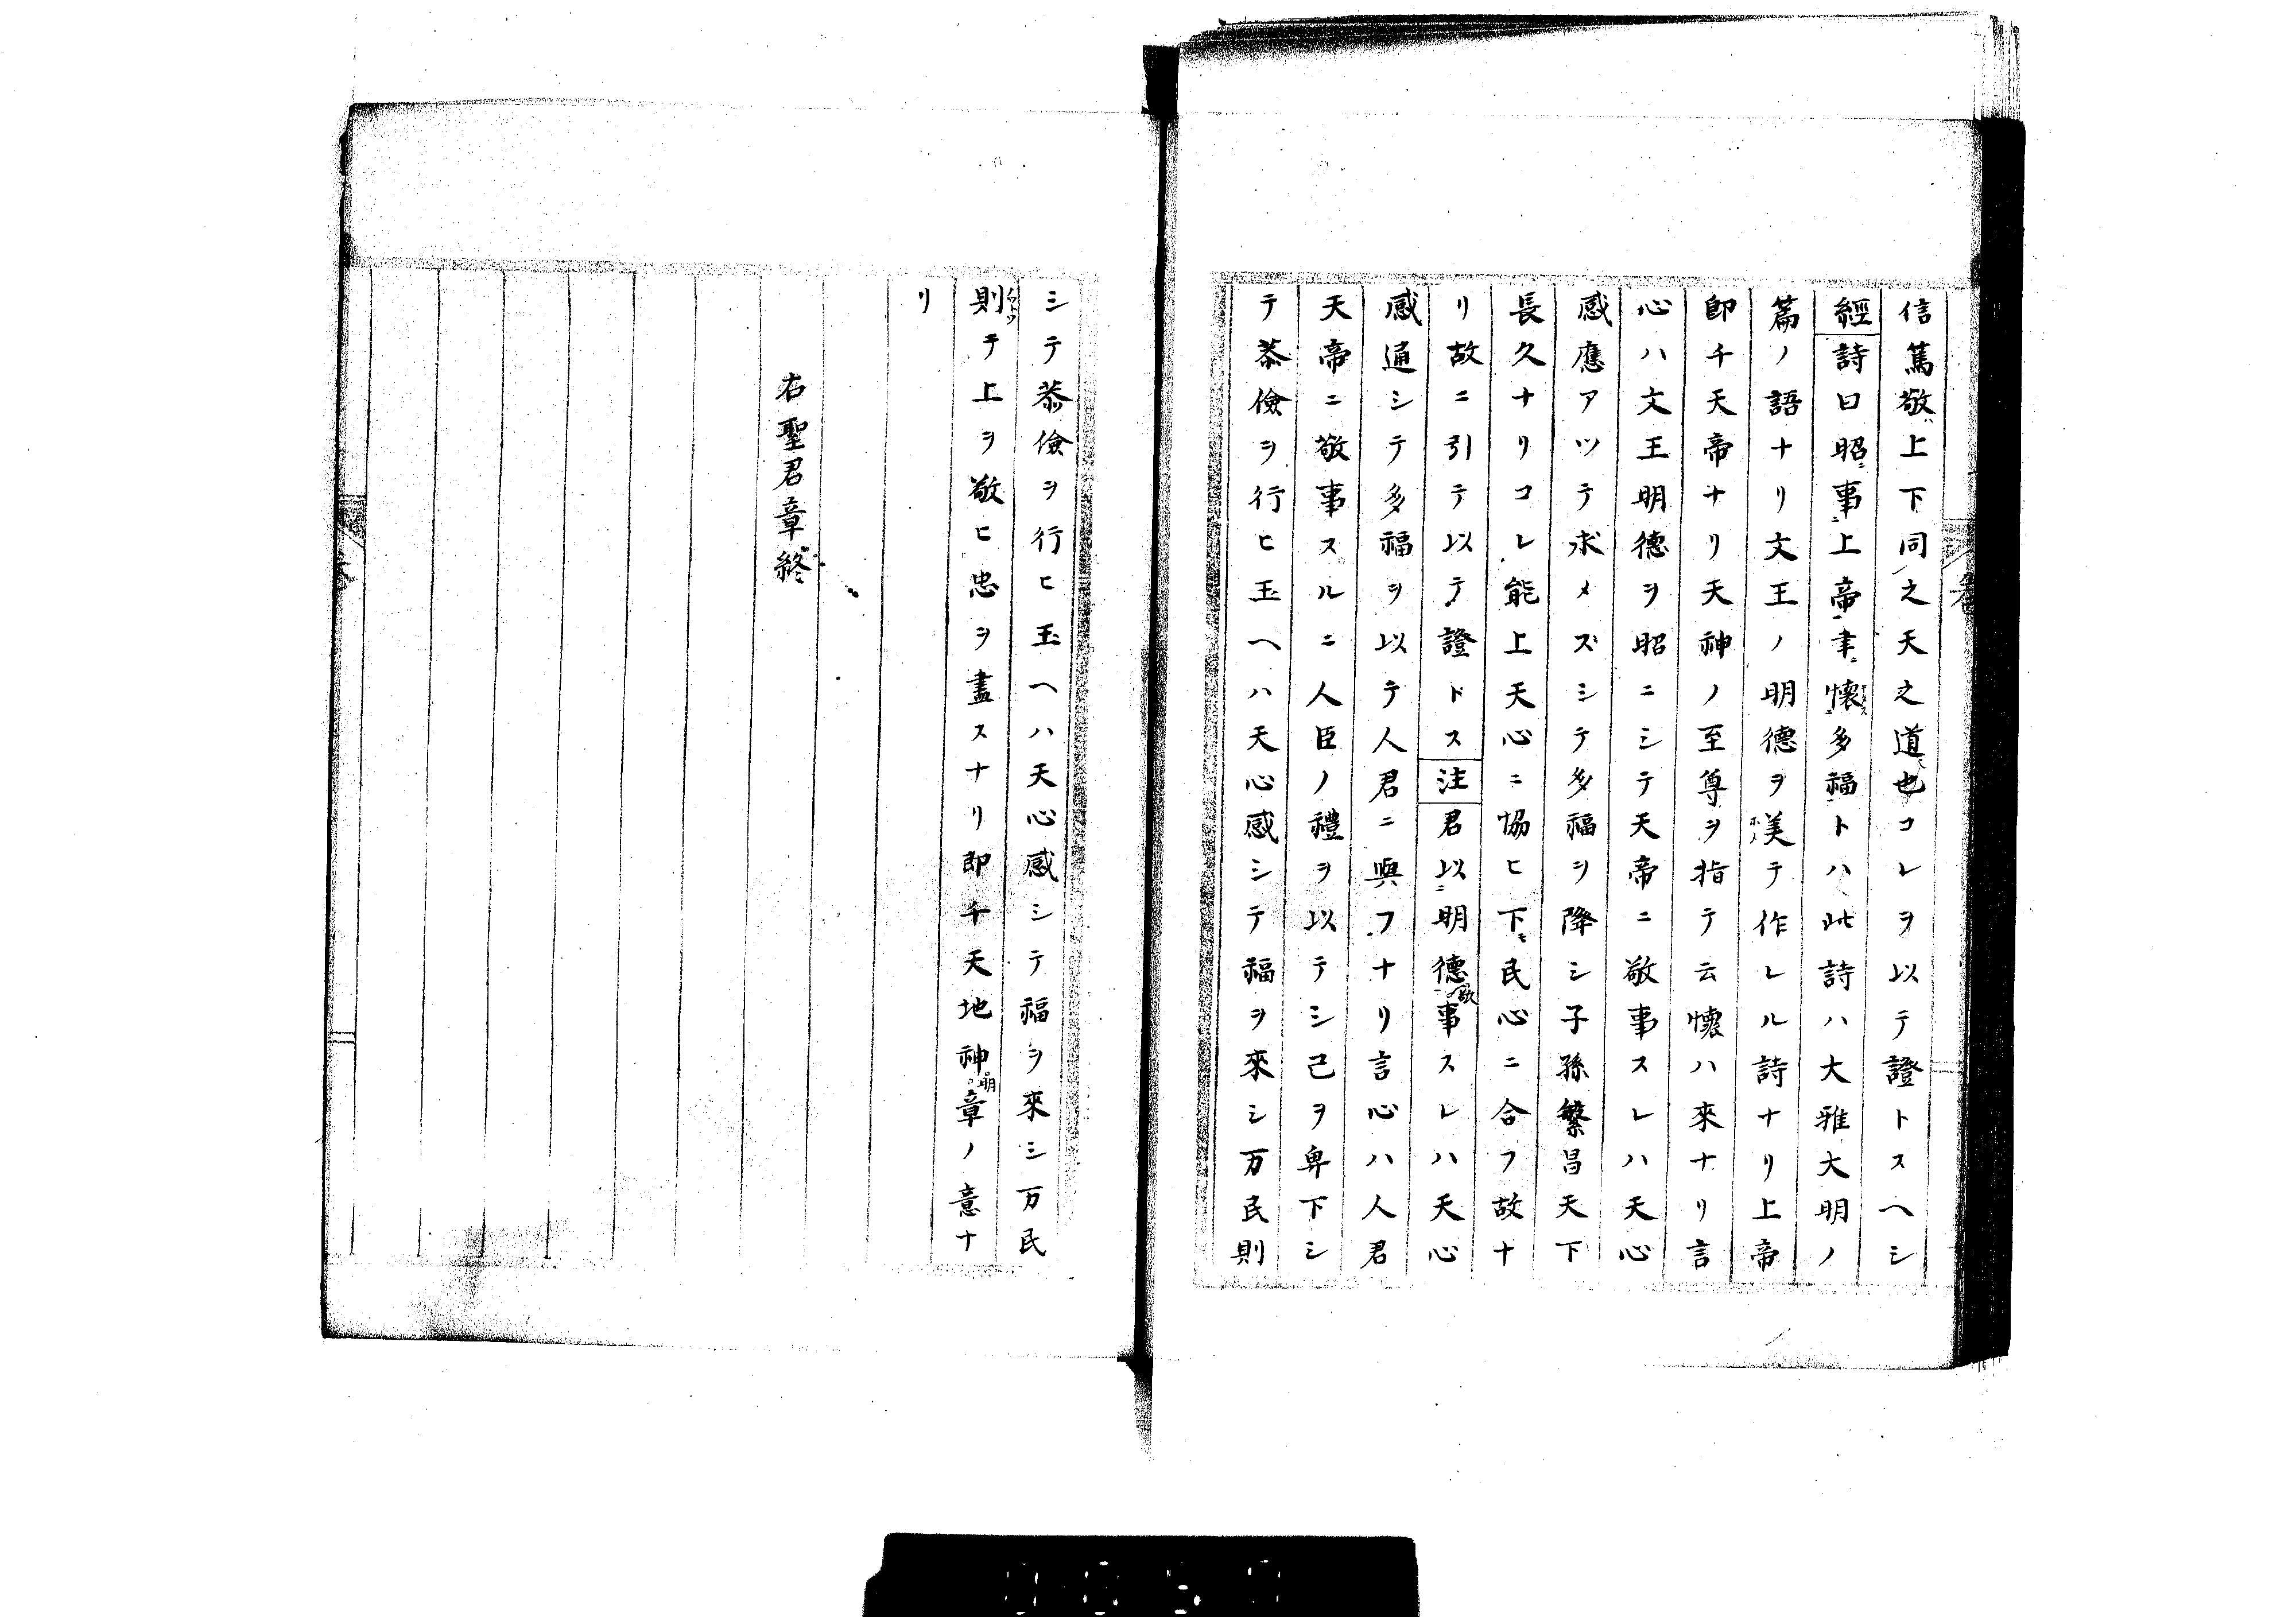 信篤敬上下同之天之道也コレヲ以テ證トスヘシ
經詩曰昭事上帝聿懷多福トハ此詩ハ大雅大明ノ
篇ノ語ナリ文王ノ明德ヲ美テ作レル詩ナリ上帝
卽チ天帝ナリ天神ノ至尊ヲ指テ云懷ハ來ナリ言
心ハ文王明德ヲ昭ニシテ天帝ニ敬事スレハ天心
感應アツテ求メズシテ多福ヲ降シ子孫繁昌天下
長久ナリコレ能上天心ニ協ヒ下民心ニ合フ故ナ
リ故ニ引テ以テ證トス注君以明德敬事スレハ天心
感通シテ多福ヲ以テ人君ニ與フナリ言心ハ人君
天帝ニ敬事スルニ人臣ノ禮ヲ以テシ己ヲ卑下シ
テ恭儉ヲ行ヒ玉ヘハ天心感シテ福ヲ來シ万民則
シテ恭儉ヲ行ヒ玉ヘハ天心感シテ福ヲ來シ万民
則テ上ヲ敬ヒ忠ヲ盡スナリ卽チ天地神明章ノ意ナ
リ
右聖君章終